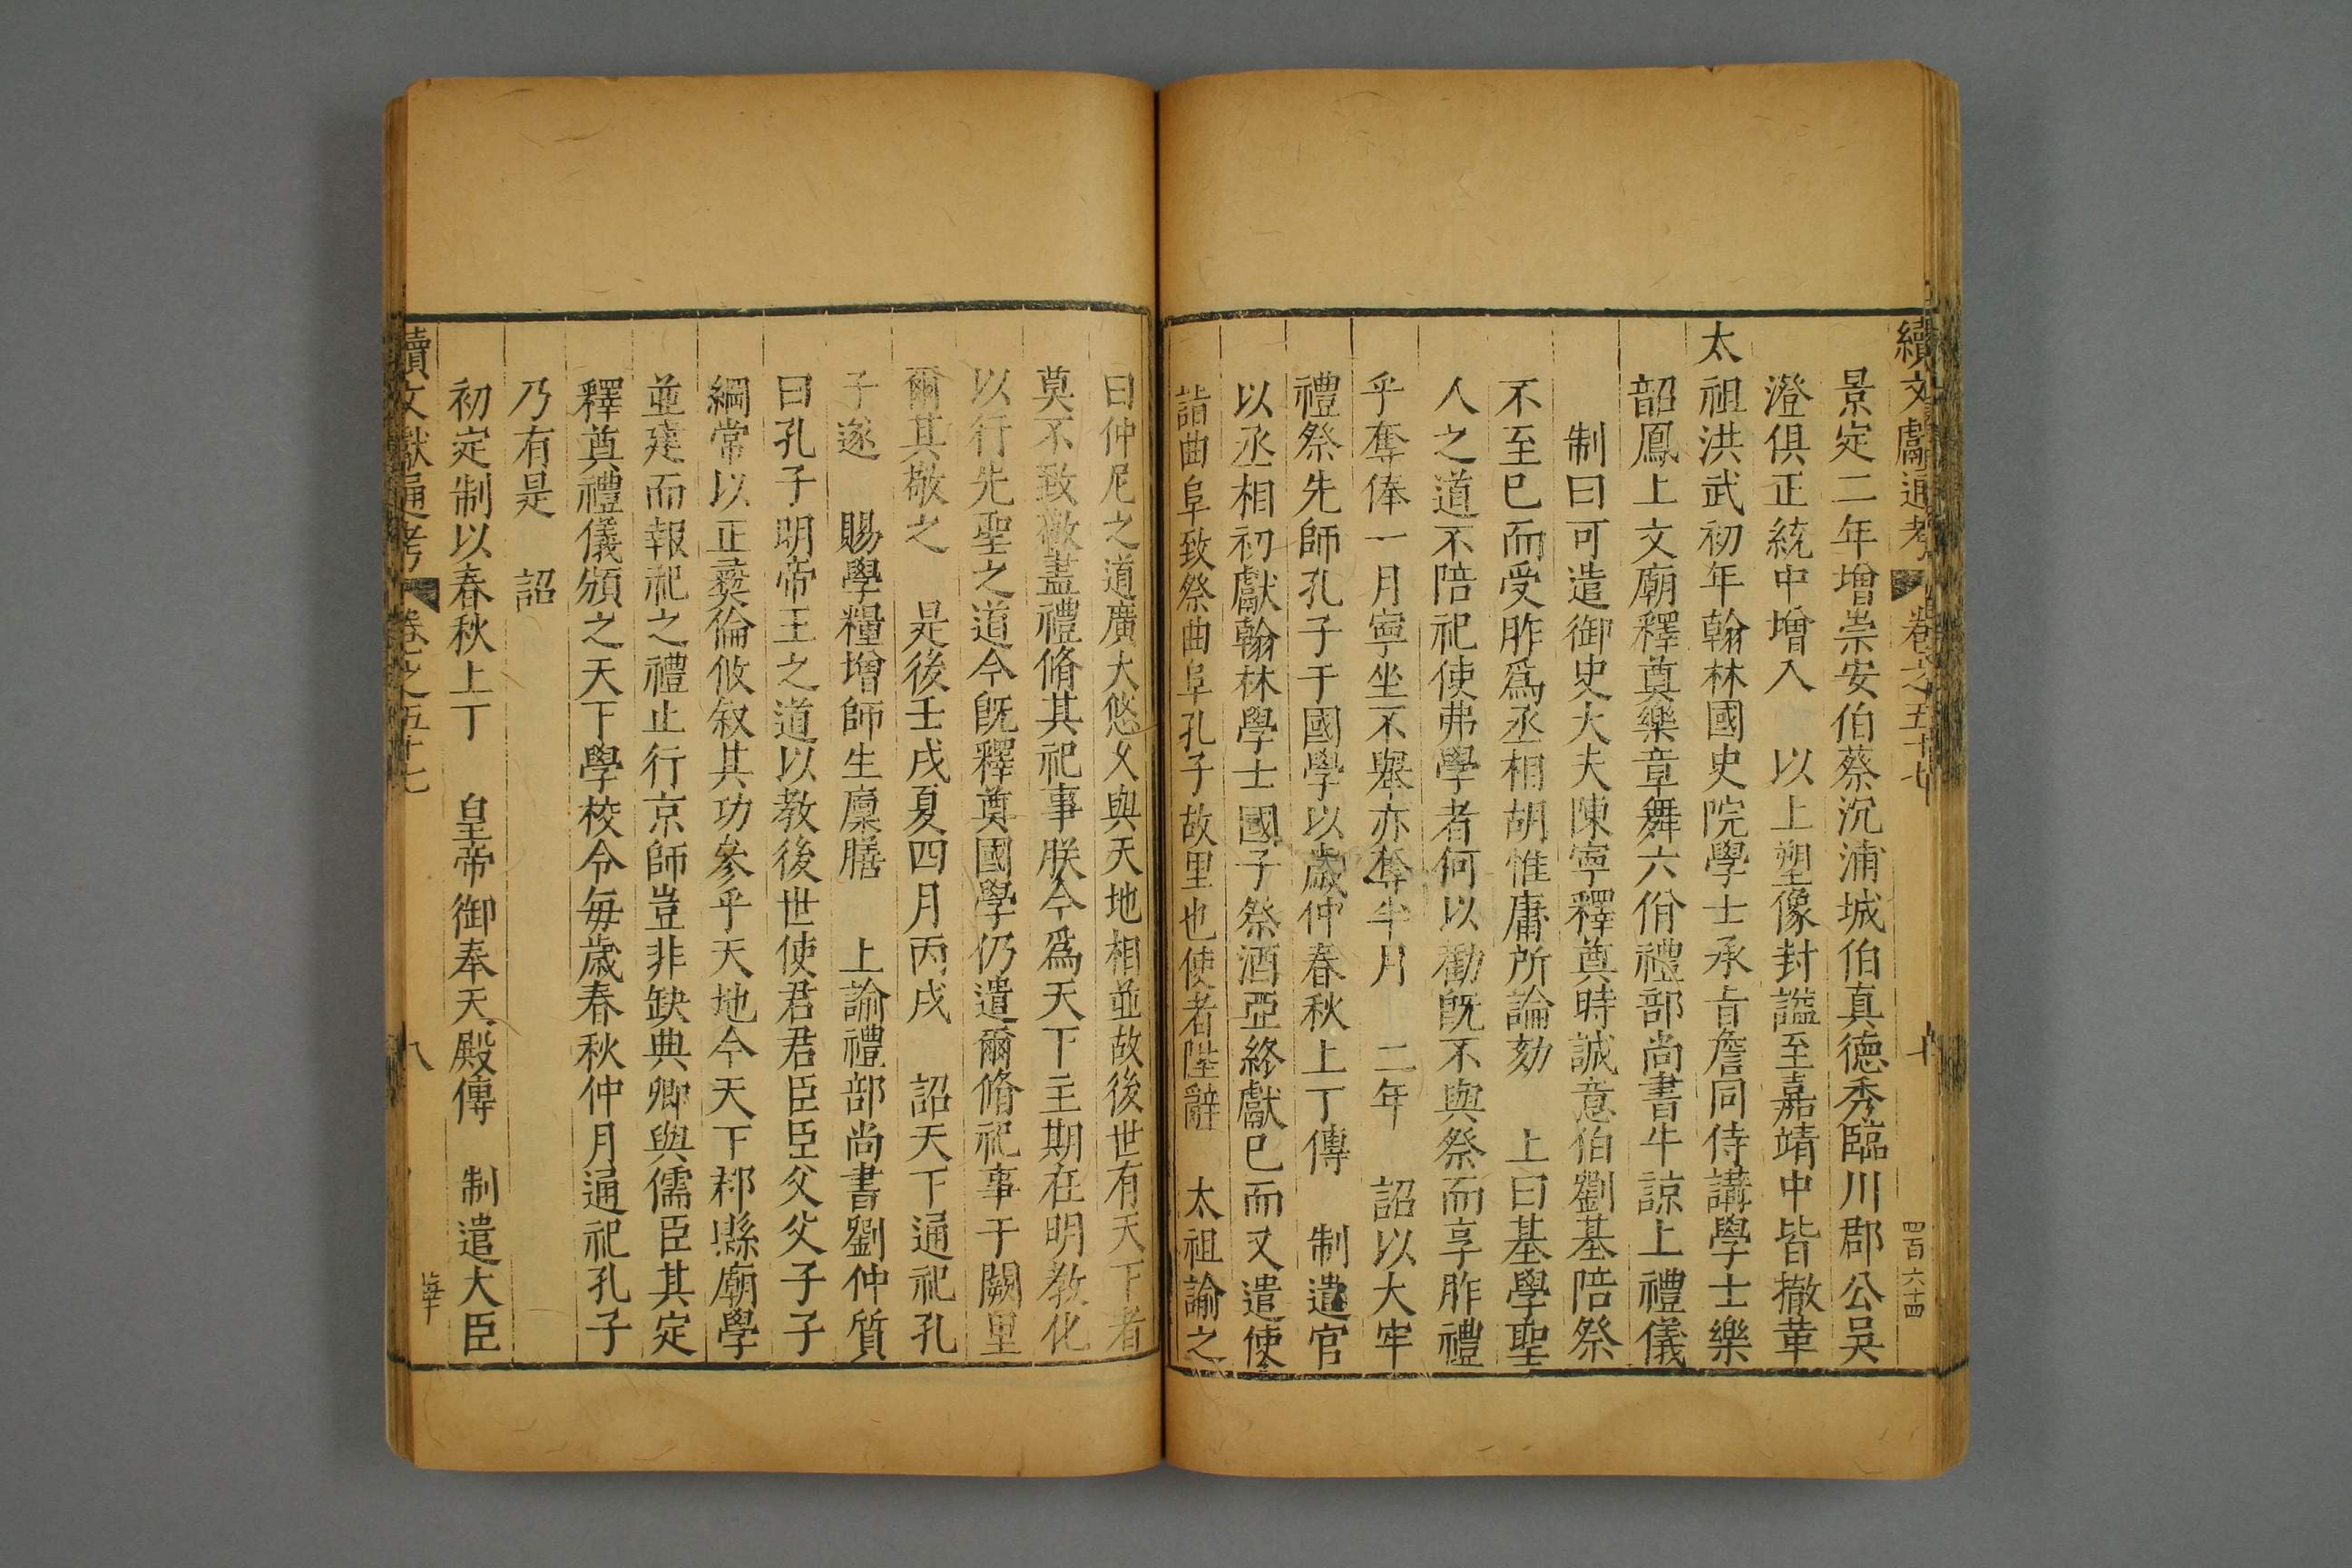 續文獻通考 卷之五十七 七 四百六十四
景定二年增崇安伯蔡沉浦城伯真德秀臨川郡公吳
澄俱正統中增入 以上塑像封謚至嘉靖中皆撤革
太祖洪武初年翰林國史院學士承旨詹同侍講學士樂
韶鳳上文廟釋奠樂章舞六佾禮部尚書牛諒上禮儀
制曰可遣御史大夫陳寧釋奠時誠意伯劉基陪祭
不至已而受胙爲丞相胡惟庸所論劾 上曰基學聖
人之道不陪祀使弗學者何以勸旣不與祭而享胙禮
乎奪俸一月寧坐不舉亦奪半月 二年 詔以大牢
禮祭先師孔子于國學以歲仲春秋上丁傳 制遣官
以丞相初獻翰林學士國子祭酒亞終獻已而又遣使
詣曲阜致祭曲阜孔子故里也使者陛辭 太祖諭之
曰仲尼之道廣大悠久與天地相並故後世有天下者
莫不致敬盡禮脩其祀事朕今爲天下主期在明教化
以行先聖之道今旣釋奠國學仍遣爾脩祀事于闕里
爾其敬之 是後壬戌夏四月丙戌 詔天下通祀孔
子遂 賜學糧增師生廩膳 上諭禮部尚書劉仲質
曰孔子明帝王之道以教後世使君君臣臣父父子子
綱常以正彞倫攸叙其功參乎天地今天下郡縣廟學
並建而報祀之禮止行京師豈非缺典卿與儒臣其定
釋奠禮儀頒之天下學校令每歲春秋仲月通祀孔子
乃有是 詔
初定制以春秋上丁 皇帝御奉天殿傳 制遣大臣
續文獻通考 卷之五十七 八